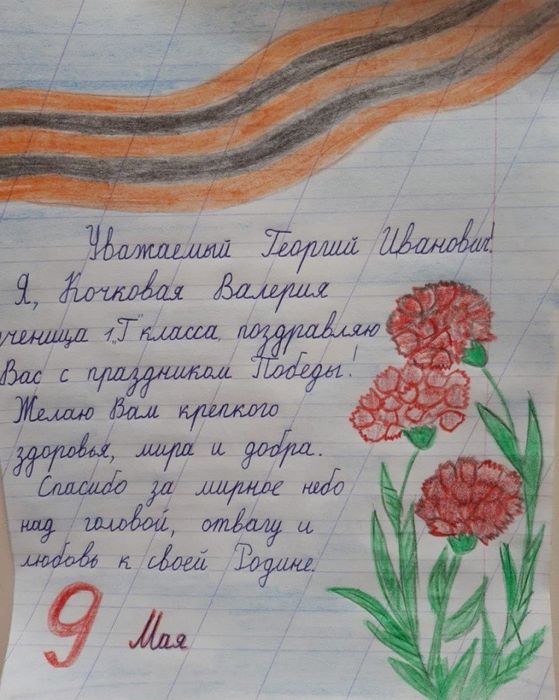 Уважаемый Георгий Иванович!
Я, Кочковая Валерия
ученица 1 "Г" класса, поздравляю
Вас с праздником Победы!
Желаю Вам крепкого
здоровья, мира и добра.
Спасибо за мирное небо
над головой, отвагу и
любовь к своей Родине.
9 Мая